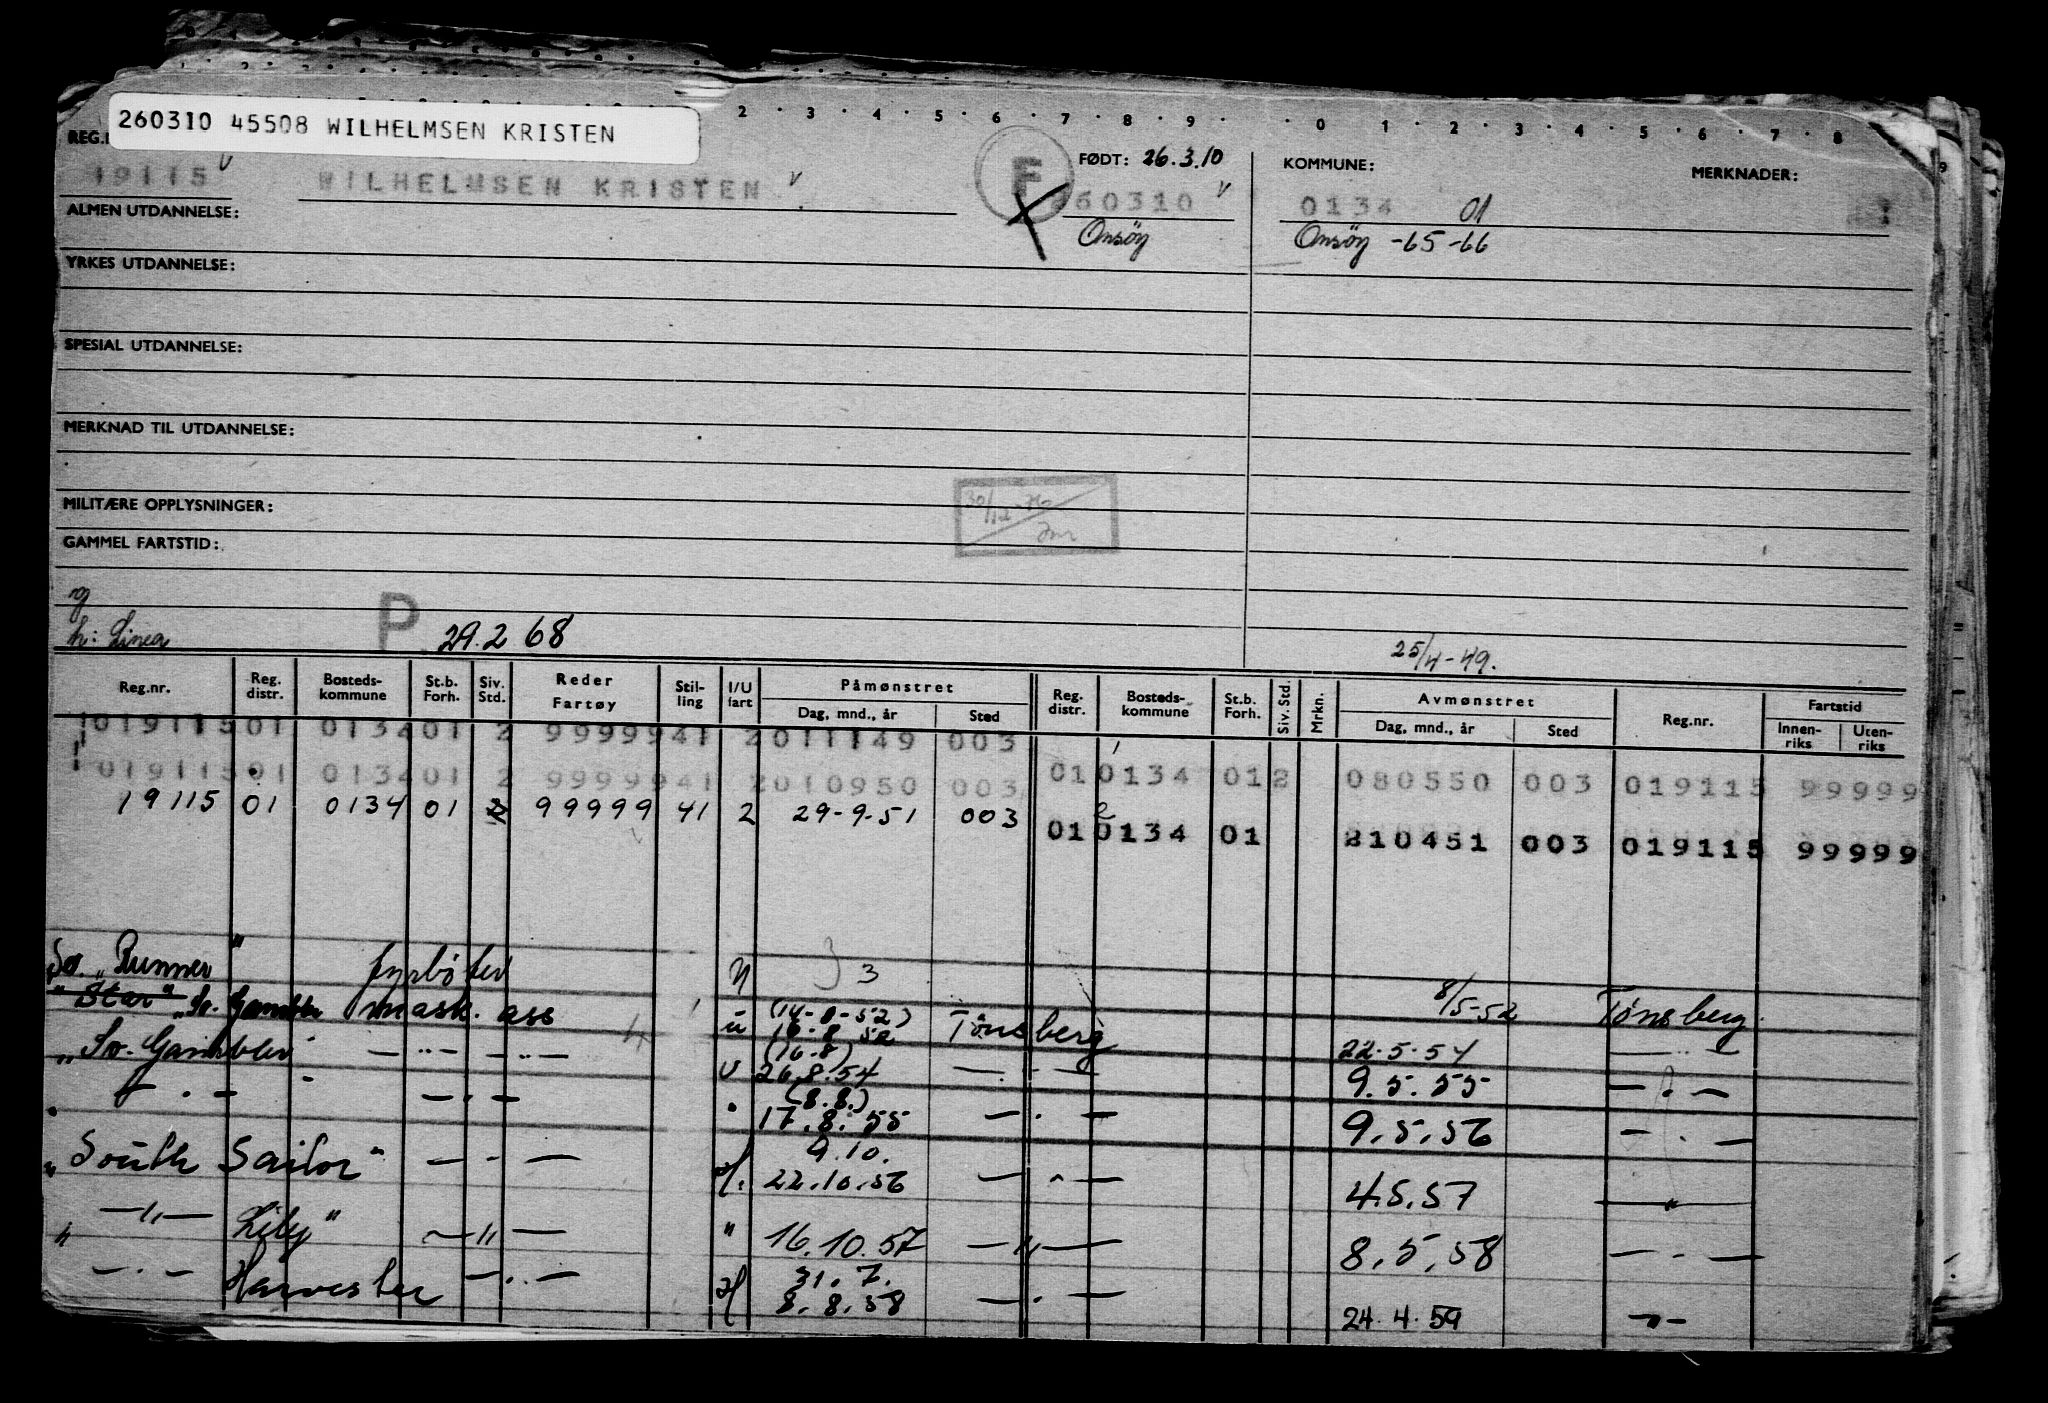 2 · 3 · 4 · 5 · 6 · 7 · 8 · 9 · 0 · 1 · 2 · 3 · 4 · 5 · 6 · 7 · 8 · 9
260310 45508 WILHELMSEN KRISTEN
REG. FØDT: 26.3.10 KOMMUNE: MERKNADER:
19115 WILHELMSEN KRISTEN F 260310 0134 01
ALMEN UTDANNELSE: Onsøy Onsøy -65-66
YRKES UTDANNELSE:
SPESIAL UTDANNELSE:
MERKNAD TIL UTDANNELSE:
MILITÆRE OPPLYSNINGER:
GAMMEL FARTSTID:
og
h: Linea P 29.2 68 25/4-49.
Reg.nr. Reg. distr. Bosteds-kommune St.b. Forh. Siv. Std. Reder Fartøy Stil-ling I/U fart Påmønstret Dag, mnd., år Sted Reg. distr. Bosteds-kommune St.b. Forh. Siv. Std. Mrkn. Avmønstret Dag, mnd., år Sted Reg.nr. Fartstid Innen-riks Uten-riks
019115 01 0134 01 2 99999 41 2 011149 003
019115 01 0134 01 2 99999 41 2 010950 003 01 0134 01 2 080550 003 019115 99999
19115 01 0134 01 2 99999 41 2 29-9-51 003 01 0134 01 210451 003 019115 99999
So. "Runner" fyrbøter 3 8/5-52 Tønsberg
"Star" So. Gambler mask. ass ü (14-8-52) 16-8 52 Tönsberg 22.5.54 — " —
"So. Gambler — " — — " — (16-8) 26.8.54 — " — 9.5.55 — " —
— " — — " — " (8.8.) 17.8.55 — " — 9.5.56 — " —
"South Sailor" — " — 9.10. 22.10.56 — " — 4.5.57 — " —
" — " — Lily" — " — " 16.10.57 — " — 8.5.58 — " —
— " — Harvester — " — 31.7. 8.8.58 — " — 24.4.59 — " —